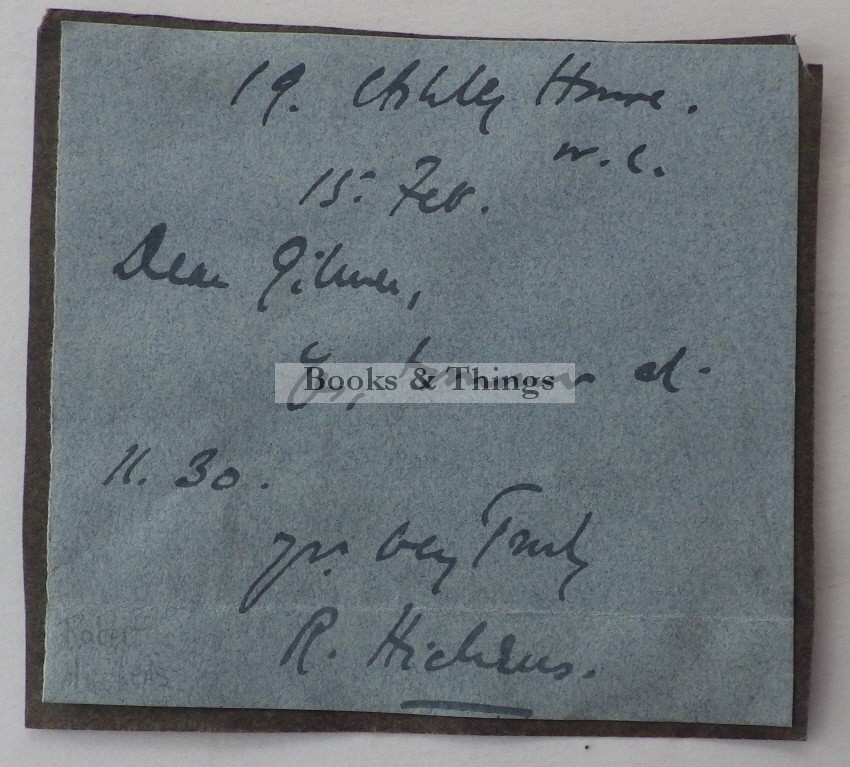 19. Ashley House.
W.C.
15: Feb.
Dear Gilmer,
Yes, tomorrow at
Books & Things
11.30.
yrs. very Truly
R. Hichens.
Robert
Hichens